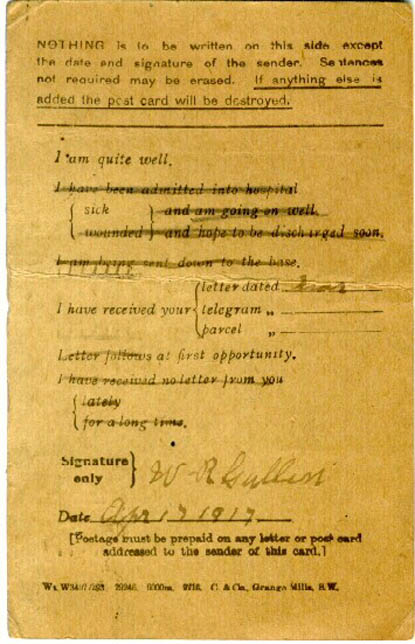 NOTHING is to be written on this side except
the date and signature of the sender. Sentences
not required may be erased. If anything else is
added the post card will be destroyed.
I am quite well.
I have been admitted into hospital
sick and am going on well.
wounded and hope to be discharged soon.
I am being sent down to the base.
letter dated
I have received your telegram „
parcel „
Letter follows at first opportunity.
I have received no letter from you
lately
for a long time.
Signature
only
W R
Date Apr 17 1917
[Postage must be prepaid on any letter or post card
addressed to the sender of this card.]
C. & Co., Grange Mills, S.W.